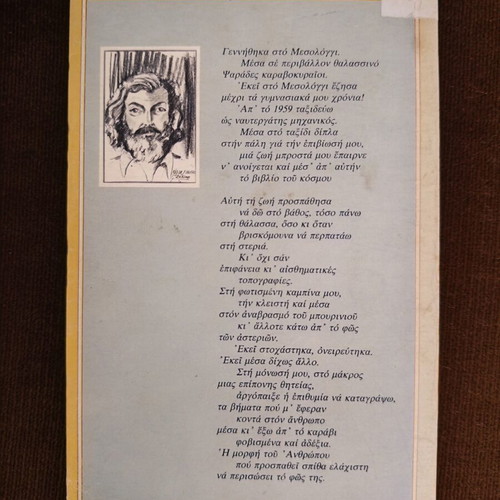 Γεννήθηκα στό Μεσολόγγι.
Μέσα σέ περιβάλλον θαλασσινό
Ψαράδες καραβοκυραῖοι.
Ἐκεῖ στό Μεσολόγγι ἔζησα
μέχρι τά γυμνασιακά μου χρόνια!
Ἀπ᾿ τό 1959 ταξιδεύω
ὡς ναυτεργάτης μηχανικός.
Μέσα στό ταξίδι δίπλα
στήν πάλη γιά τήν ἐπιβίωσή μου,
μιά ζωή μπροστά μου ἔπαιρνε
ν᾿ ἀνοίγεται καί μέσ᾿ ἀπ᾿ αὐτήν
τό βιβλίο τοῦ κόσμου
Αὐτή τή ζωή προσπάθησα
νά δῶ στό βάθος, τόσο πάνω
στή θάλασσα, ὅσο κι ὅταν
βρισκόμουνα νά περπατάω
στή στεριά.
Κι᾿ ὄχι σάν
ἐπιφάνεια κι᾿ αἰσθηματικές
τοπογραφίες.
Στή φωτισμένη καμπίνα μου,
τήν κλειστή καί μέσα
στόν ἀναβρασμό τοῦ μπουρινιοῦ
κι᾿ ἄλλοτε κάτω ἀπ᾿ τό φῶς
τῶν ἀστεριῶν.
Ἐκεῖ στοχάστηκα, ὀνειρεύτηκα.
Ἐκεῖ μέσα δίχως ἄλλο.
Στή μόνωσή μου, στό μάκρος
μιας ἐπίπονης θητείας,
ἀργόπαιξε ἡ ἐπιθυμία νά καταγράψω,
τα βήματα πού μ᾿ ἔφεραν
κοντά στόν ἄνθρωπο
μέσα κι᾿ ἔξω ἀπ᾿ τό καράβι
φοβισμένα καί ἀδέξια.
Ἡ μορφή τοῦ Ἀνθρώπου
πού προσπαθεῖ σπίθα ἐλάχιστη
νά περισώσει τό φῶς της.